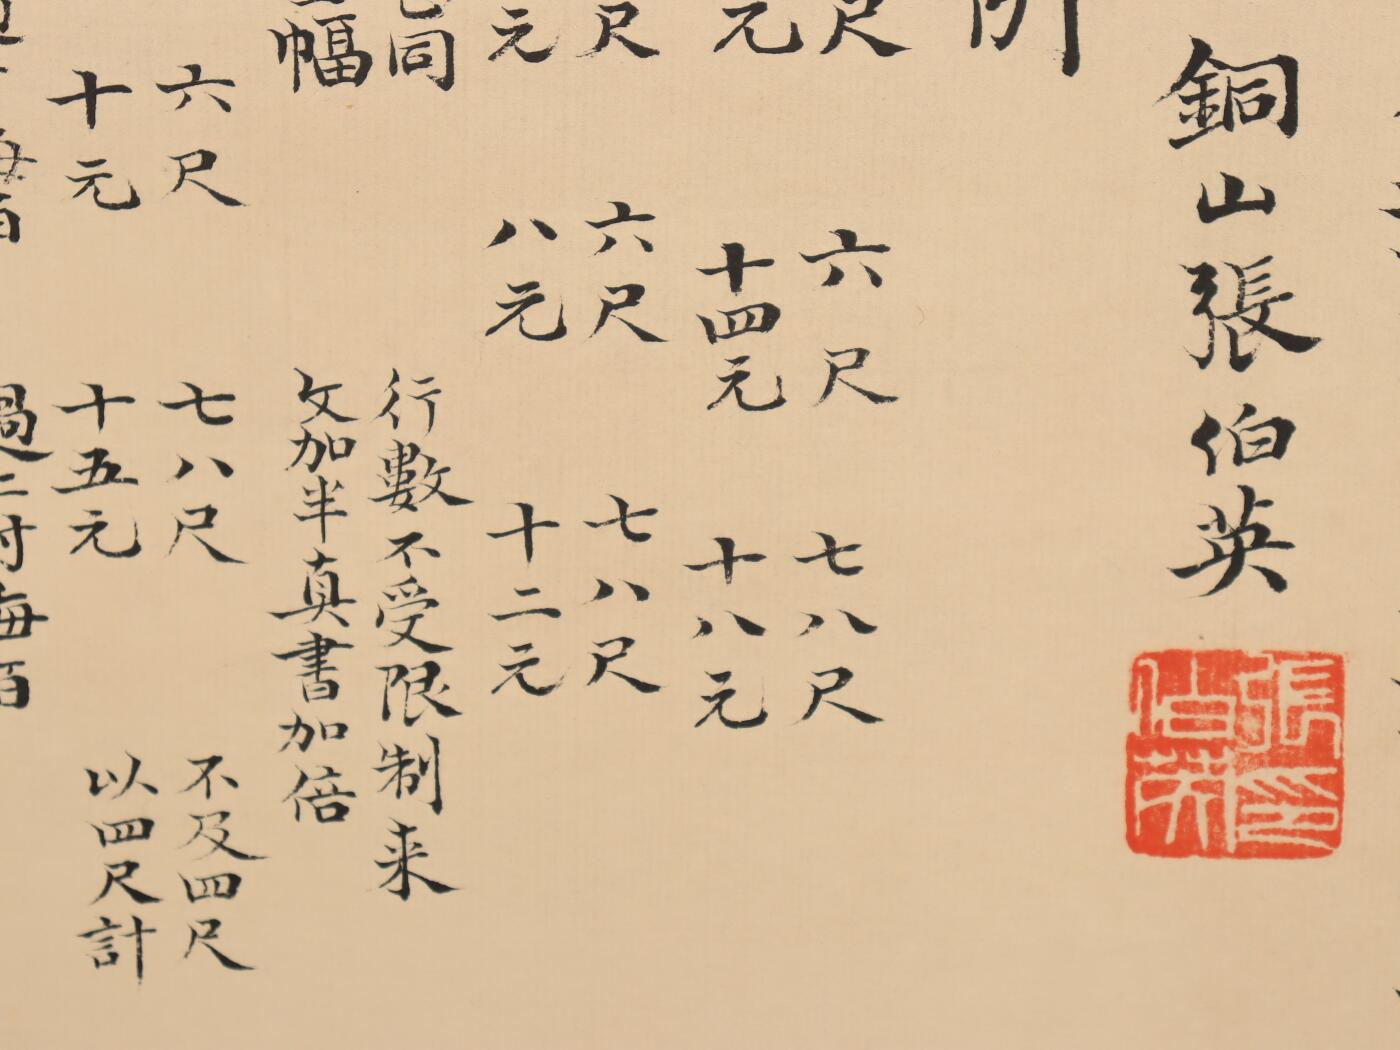 銅山張伯英
張伯英印
例
尺 六尺 七八尺
元 十四元 十八元
尺 六尺 七八尺
元 八元 十二元
同 行數不受限制来
幅 文加半真書加倍
六尺 七八尺 不及四尺
十元 十五元 以四尺計
每百 過二寸每百